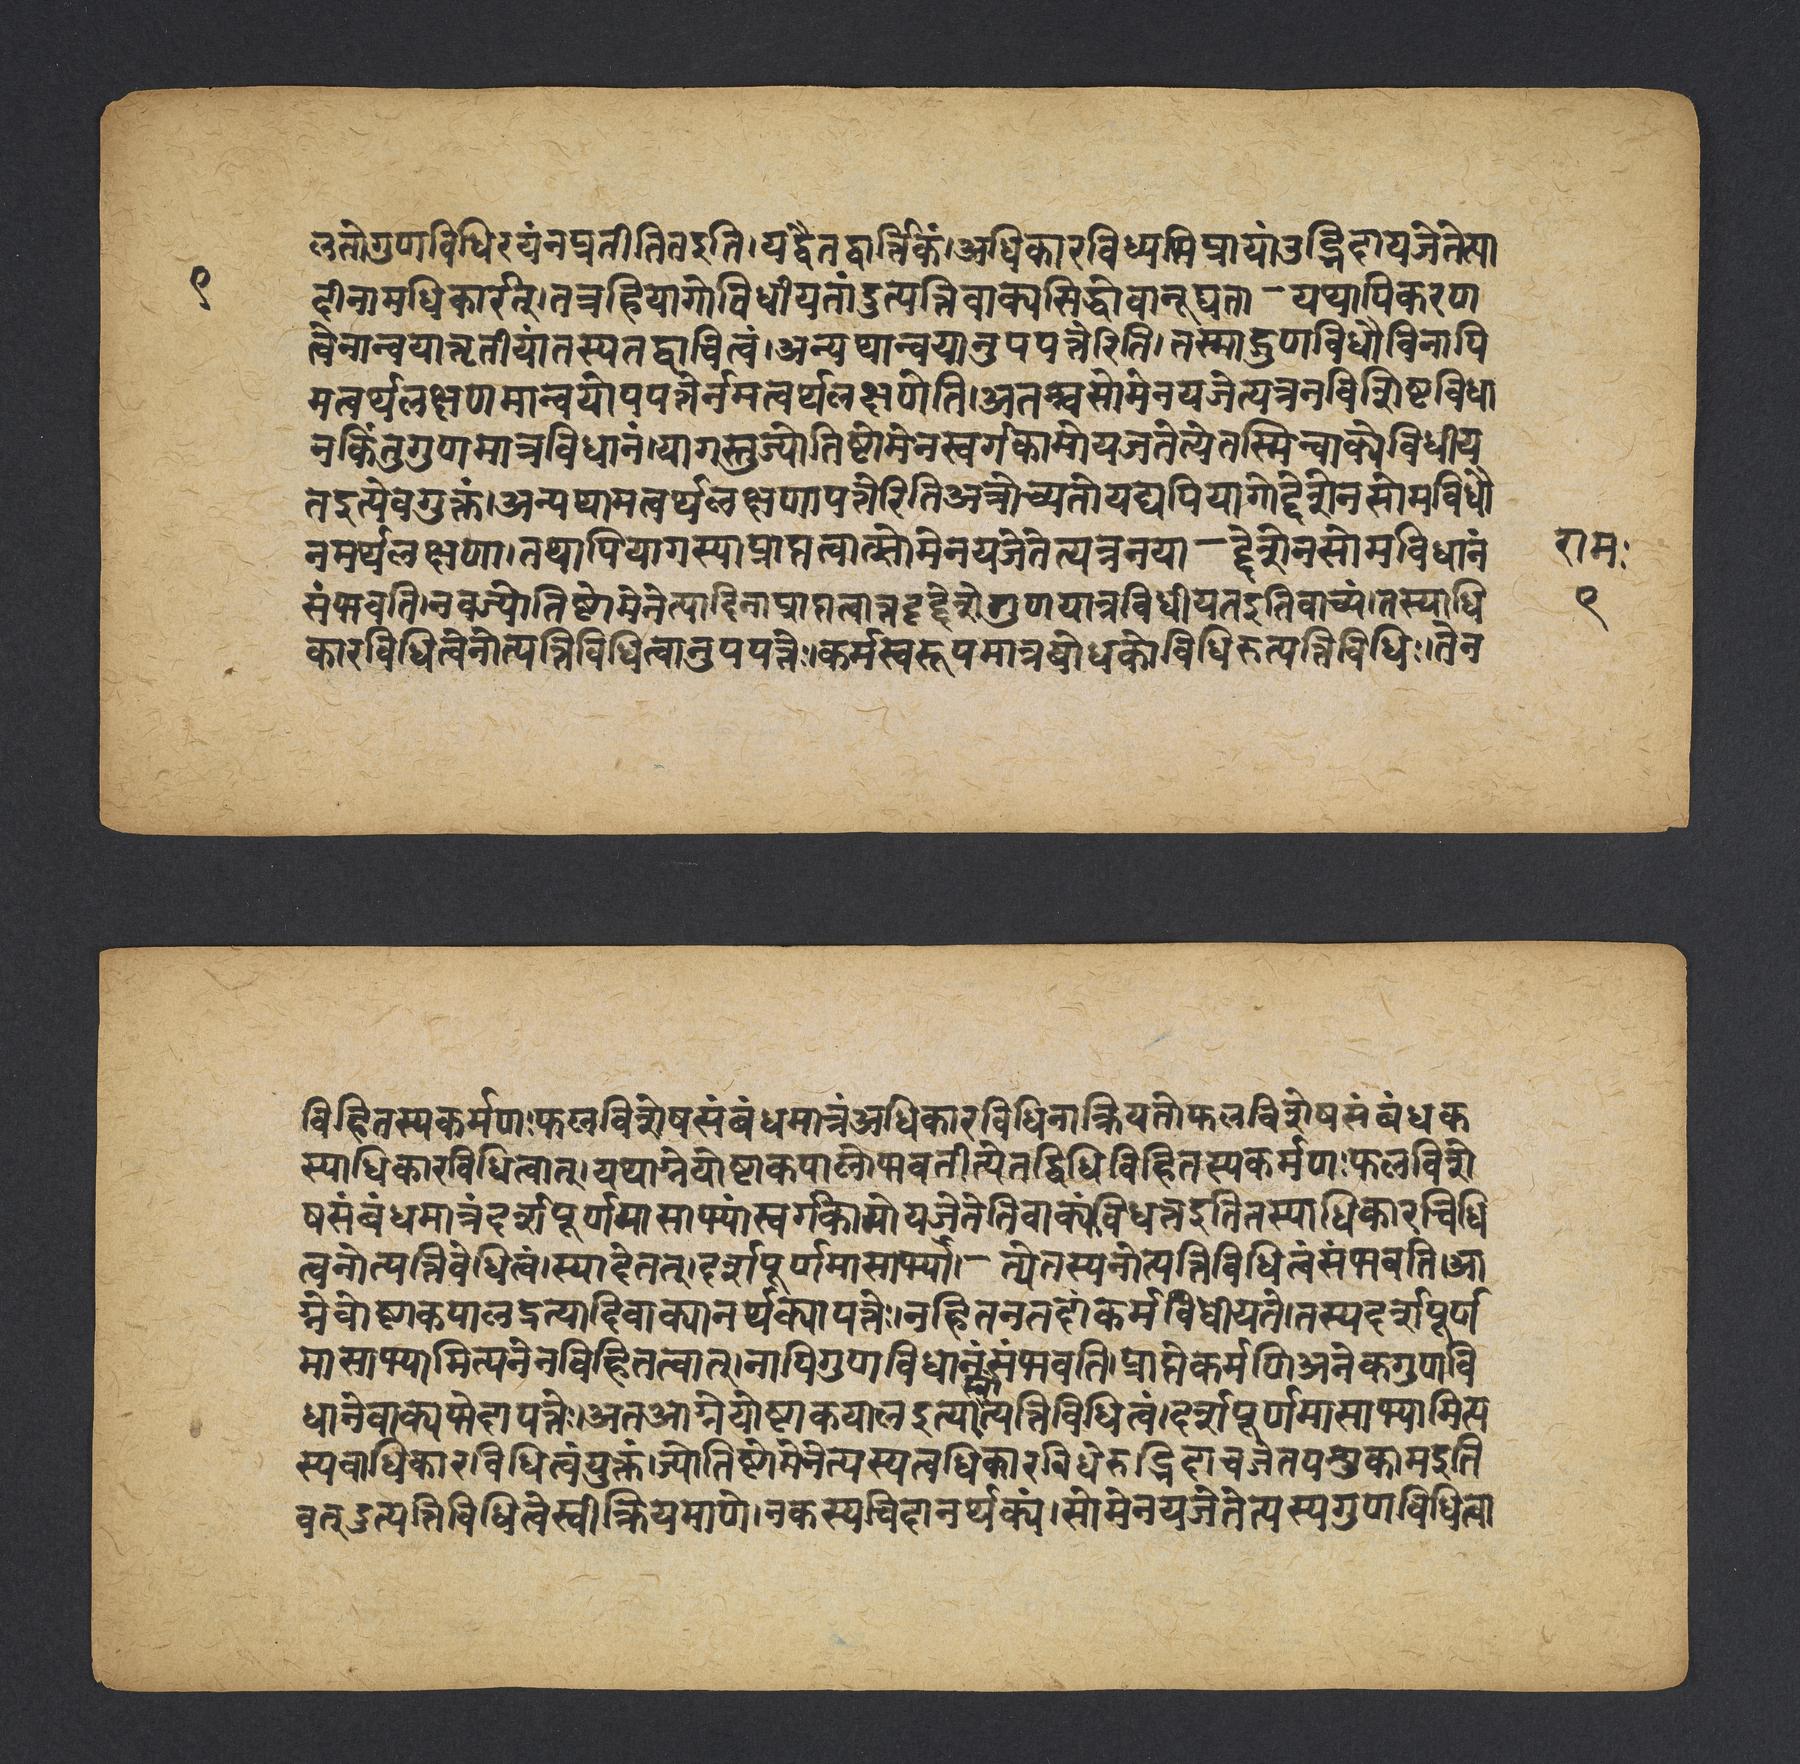 लतोगुणविधिरयंनप्रतीतितइति।यद्वैतद्वार्त्तिकं।अधिकारविध्यभिप्रायांउद्भिदायजेतेत्या
दीनामधिकार्रतू।तत्रहियागोविधीयतांउत्पत्तिवाक्यसिद्धोवानूद्यता – यथापिकरण
त्वेनान्वयात्तृतीयांतस्यतद्वाचित्वं।अन्यथान्वयानुपपत्तेरिति।तस्माद्गुणविधौविनापि
मत्वर्थलक्षणमान्वयोपपत्तेर्नमत्वर्थलक्षणेति।अतश्चसोमेनयजेत्यत्रनविशिष्टविधा
नकिंतुगुणमात्रविधानं।यागस्तुज्योतिष्टोमेनस्वर्गकामोयजतेत्येतस्मिन्वाक्येविधीय
तइत्येवगुक्तं।अन्यथामत्वर्थलक्षणापत्तेरितिअत्रोच्यतोयद्यपियागोद्देशेनसोमविधौ
नमर्थलक्षणा।तथापियागस्याप्राप्तत्वात्सोमेनयजेतेत्यत्रनया – द्देशेनसोमविधानं
संभवति।नवज्योतिष्टोमेनेत्यादिनाप्राप्तत्वात्तदुद्देशेगुणयात्रविधीयतइतिवाच्यं।तस्याधि
कारविधित्वेनोत्पत्तिविधित्वानुपपत्तेः।कर्मस्वरूपमात्रबोधकोविधिरुत्पत्तिविधिः।तेन
९
रामः
९
विहितस्यकर्मणःफलविशेषसंबंधमात्रंअधिकारविधिनाक्रियतोफलविशेषसंबंधक
स्याधिकारविधित्वात्।यथाग्नेयोष्टाकपालोभवतीत्येतद्विधिविहितस्यकर्मणःफलविशे
षसंबंधमात्रंदर्शपूर्णमासाभ्यांस्वर्गकामोयजेतेतिवाक्यंविधत्तइतितस्याधिकारविधि
त्वनोत्पत्तिवेधित्वं।स्यादेतत्।दर्शपूर्णमासाभ्यां। – त्येतस्यनोत्पत्तिविधित्वंसंभवति।आ
ग्नेयोष्टाकपालइत्यादिवाक्यानर्थक्यापत्तेः।नहितनतदांकर्मविधीयते।तस्यदर्शपूर्ण
मासाभ्यामित्यनेनविहितत्वात्।नापिगुणविधानंसंभवति।प्राप्तेकर्मणिअनेकगुणवि
धानेवाक्यभेदापत्तेः।अतआग्नेयोष्टाकयालइत्यात्पत्तिविधित्वं।दर्शपूर्णमासाभ्यामित्य
स्यवाधिकारविधित्वंयुक्तं।ज्योतिष्टोमेनेत्यस्यत्वधिकारविधेरुद्भिदाचजेतपशुकामइति
वत्उत्पत्तिविधित्वेस्वीक्रियमाणे।नकस्यचिदानर्थक्यं।सोमेनयजेतेत्यस्यगुणविधित्वा